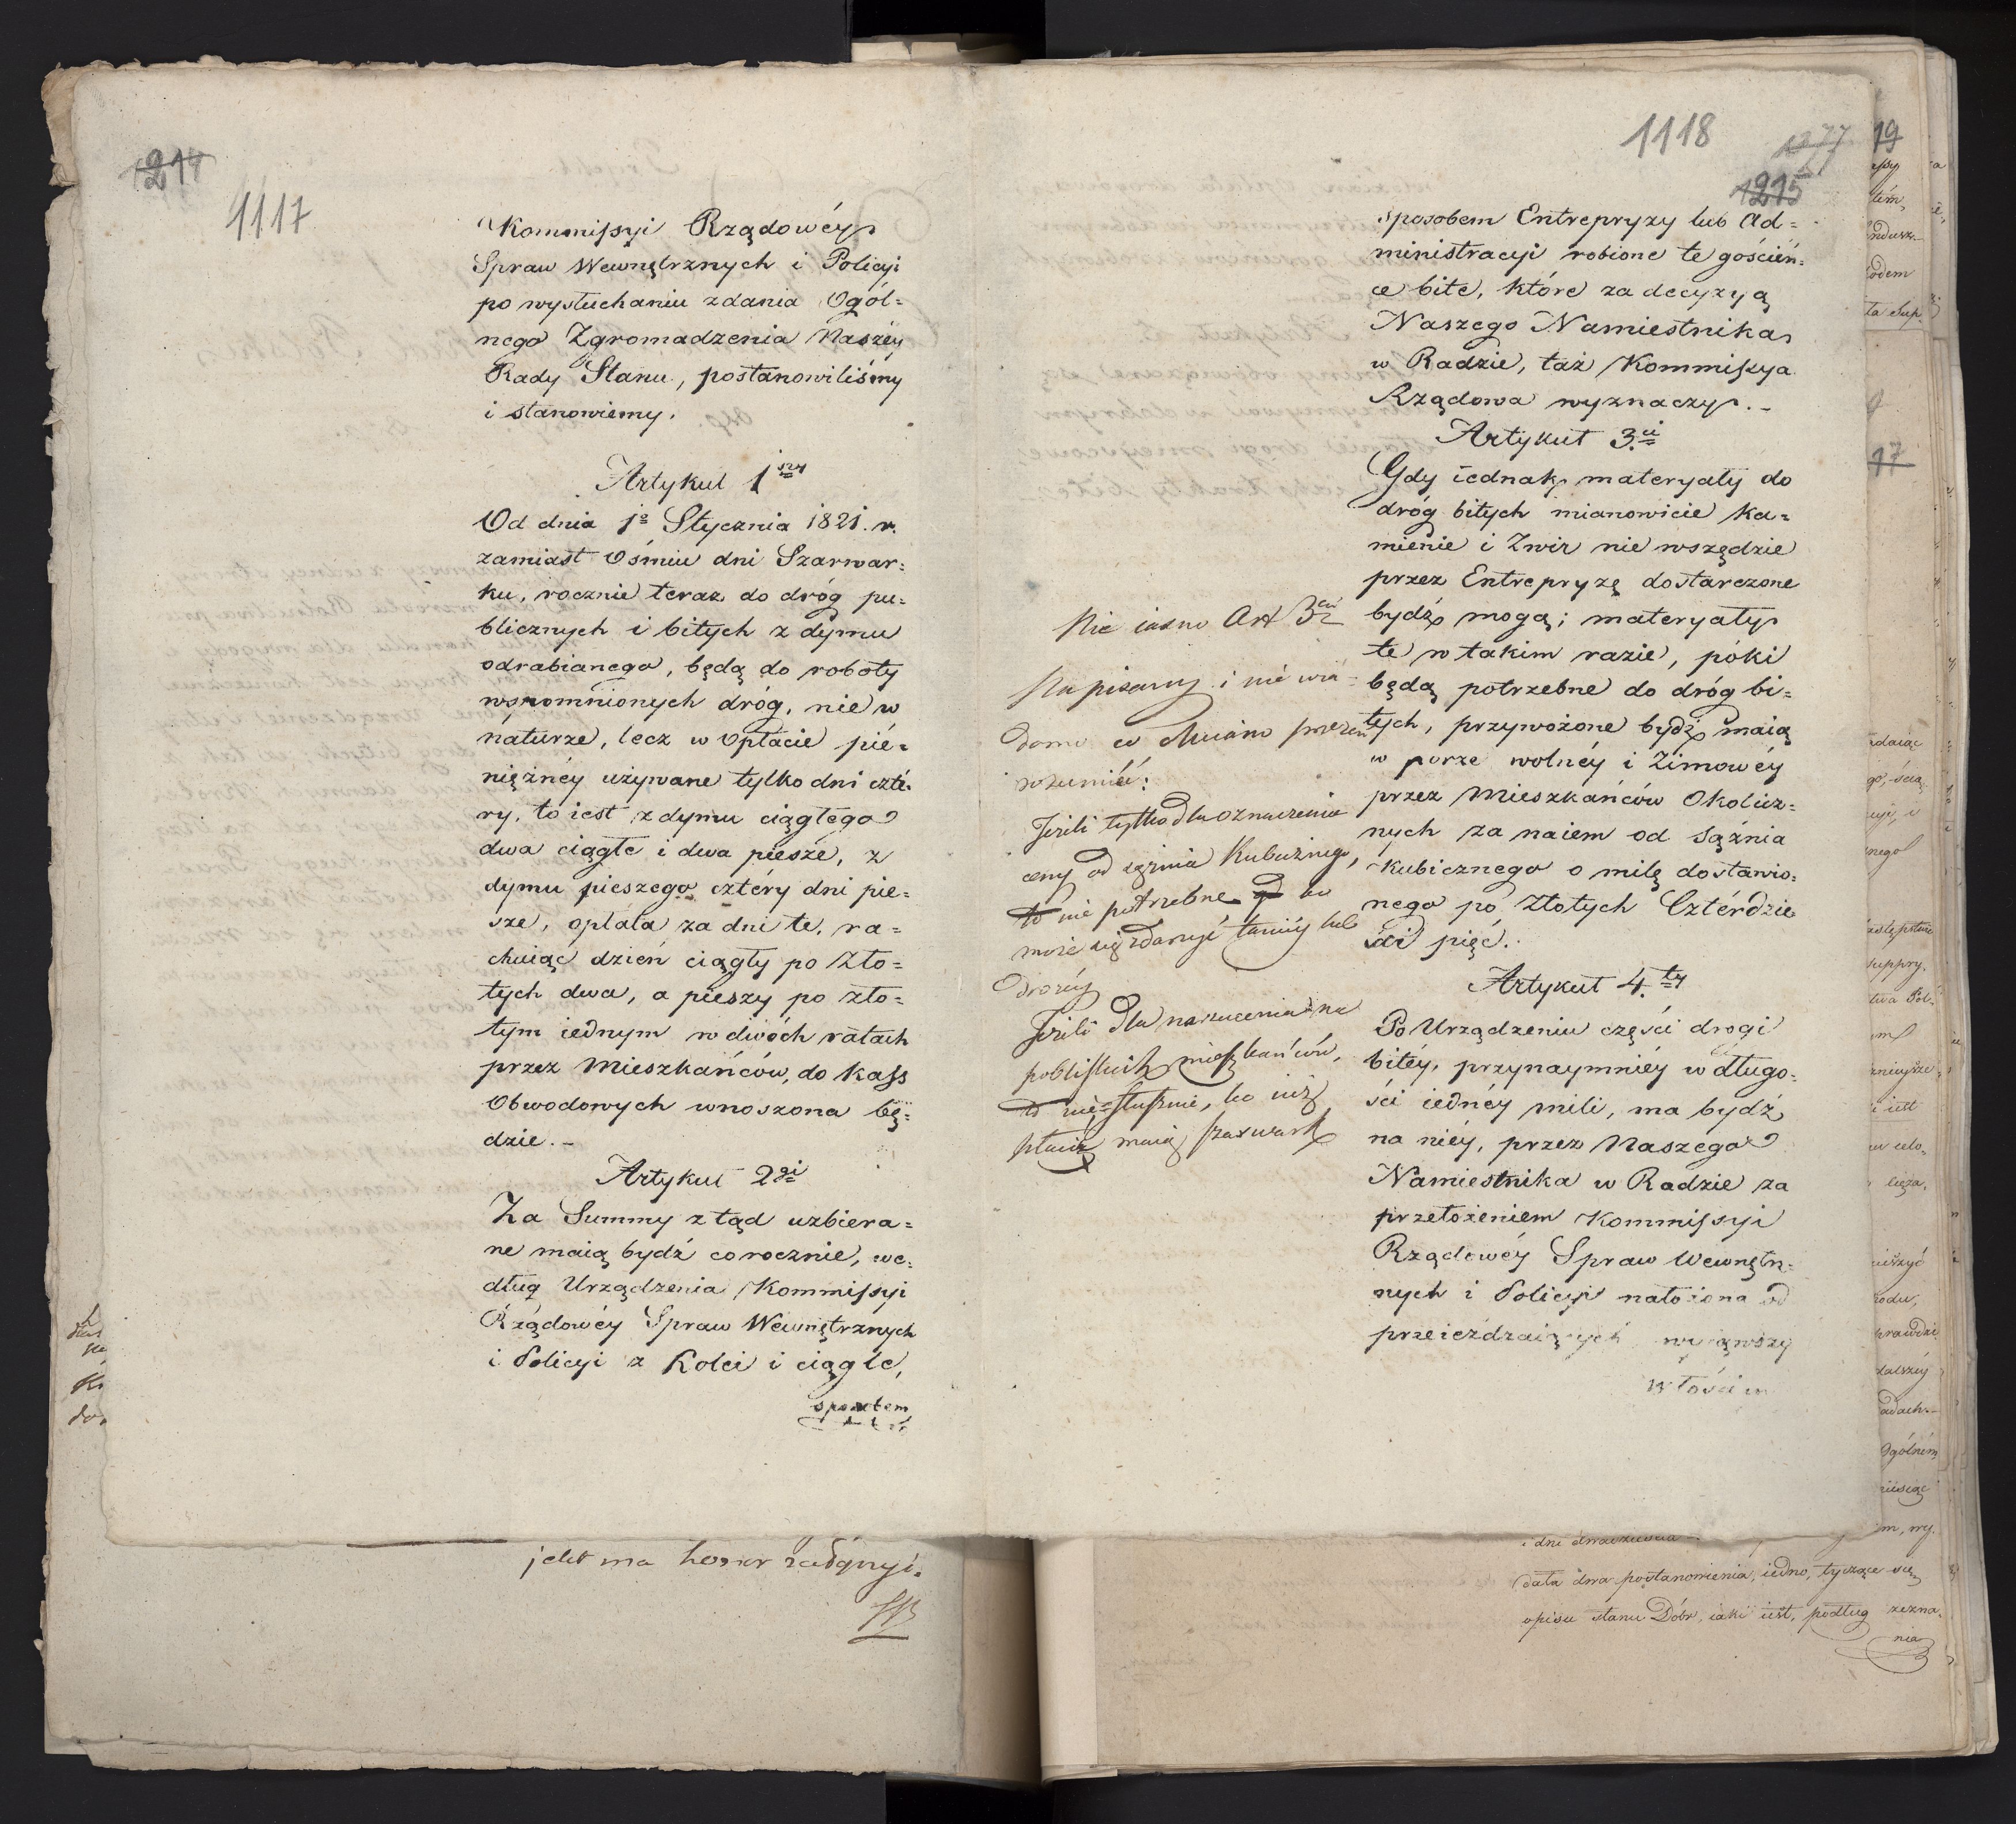 1214
1117
Kommissyi Rządowéy
Spraw Wewnętrznych i Policyi
po wysłuchaniu zdania Ogól=
nego Zgromadzenia Naszéy
Rady Stanu, postanowiliśmy
i stanowiemy.
Artykuł 1szy
Od dnia 1o Stycznia 1821. r.
zamiast Ośmiu dni Szarwar=
ku, rocznie teraz do dróg pu=
blicznych i bitych z dymu
odrabianego, będą do roboty
wspomnionych dróg, nie w
naturze, lecz w Opłacie pié=
niężnéy używane tylko dni czté=
ry, to iest z dymu ciągłego
dwa ciągłe i dwa piesze, z
dymu pieszego cztéry dni pie=
sze, opłata za dni te, ra=
chuiąc dzień ciągły po Zło=
tych dwa, a pieszy po zło=
tym iednym w dwóch ratach
przez Mieszkańców, do Kass
Obwodowych wnoszona bę=
dzie. -
Artykuł 2gi
Za Summy z tąd uzbiera=
ne maią bydź corocznie, we=
dług Urządzenia Kommissyi
Rządowéy Spraw Wewnętrznych
i Policyi z Kolei i ciągle,
sposobem
1118
1377
1215
sposobem Entrepryzy lub Ad=
ministracyi robione te gościń=
ce bite, które za decyzyą
Naszego Namiestnika
w Radzie, taż Kommissya
Rządowa wyznaczy. -
Artykuł 3ci
Gdy iednak materyały do
dróg bitych mianowicie Ka=
mienie i Żwir nie wszędzie
przez Entrepryzę dostarczone
bydź mogą; materyały
te w takim razie, póki
będą potrzebne do dróg bi=
tych, przywożone bydź maią
w porze wolnéy i Zimowéy
przez Mieszkańców Okolicz=
nych za naiem od Sążnia
Kubicznego o milę dostawio=
nego po Złotych Cztérdzie
ści pięć.
Artykuł 4ty
Po Urządzeniu części drogi
bitéy, przynaymniéy w długo=
ści iednéy mili, ma bydź
na niéy, przez Naszego
Namiestnika w Radzie za
przełożeniem Kommissyi
Rządowéy Spraw Wewnętrz=
nych i Policyi nałożona od
przeieżdzaiących wyiąwszy
Włościan
Nie iasno Art 3ci
Napisany i nie wia=
domo co chciano przezeń
rozumiéć:
Jeżeli tylko dla oznaczenia
ceny od sążnia Kubicznego,
to nie potrzebne bo
może się zdarzyć taniéy lub
drożéy
Jeżeli dla narzucenia na
pobliskich mieszkańców,
to nie słusznie, bo iuż
płacić maią szarwark
jekt ma honor załączyć.
i dni
data dwa postanowienia, iedno, tyczące się
opisu stanu Dóbr, iaki iest, podług zezna=
nia
19
17